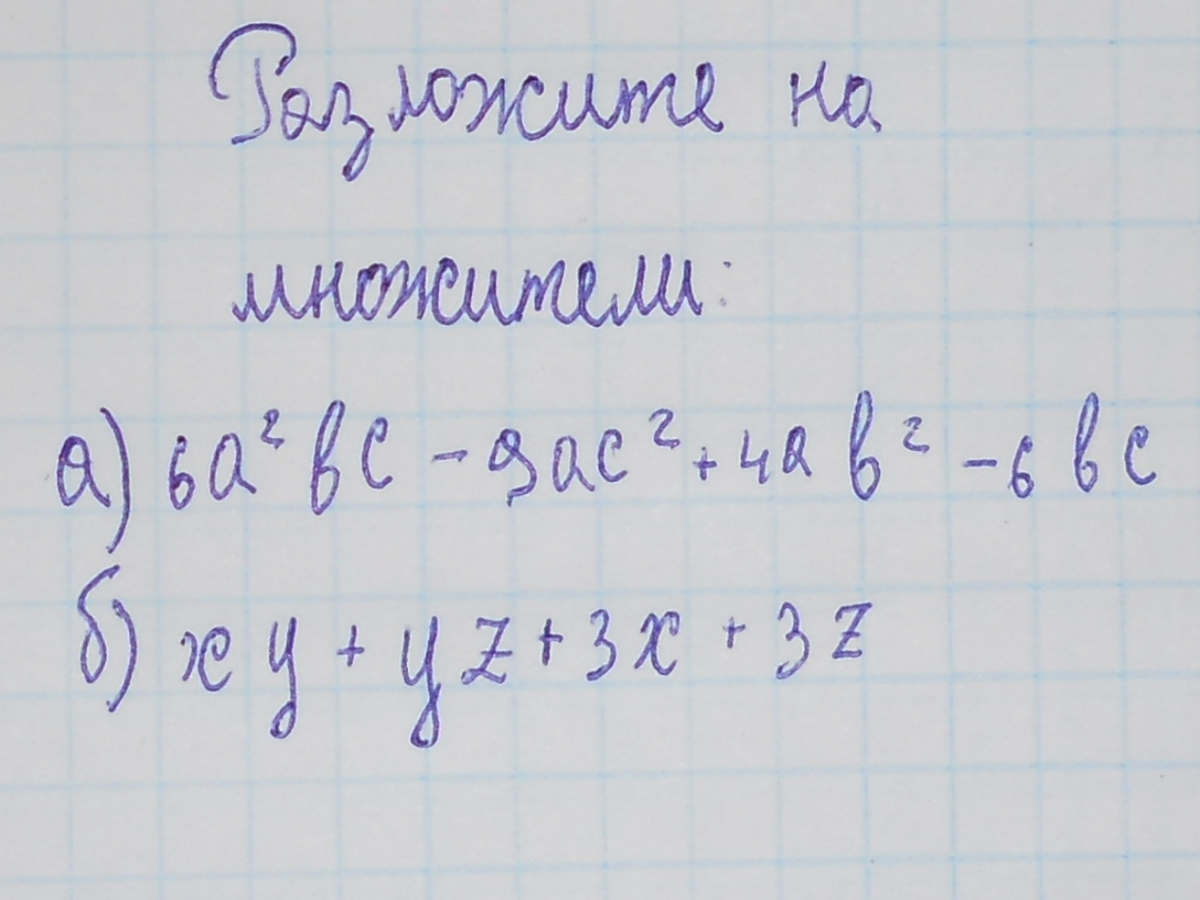 Разложите на
множители:
а) 6a²bc - 9ac² + 4ab² - 6bc
б) xy + yz + 3x + 3z